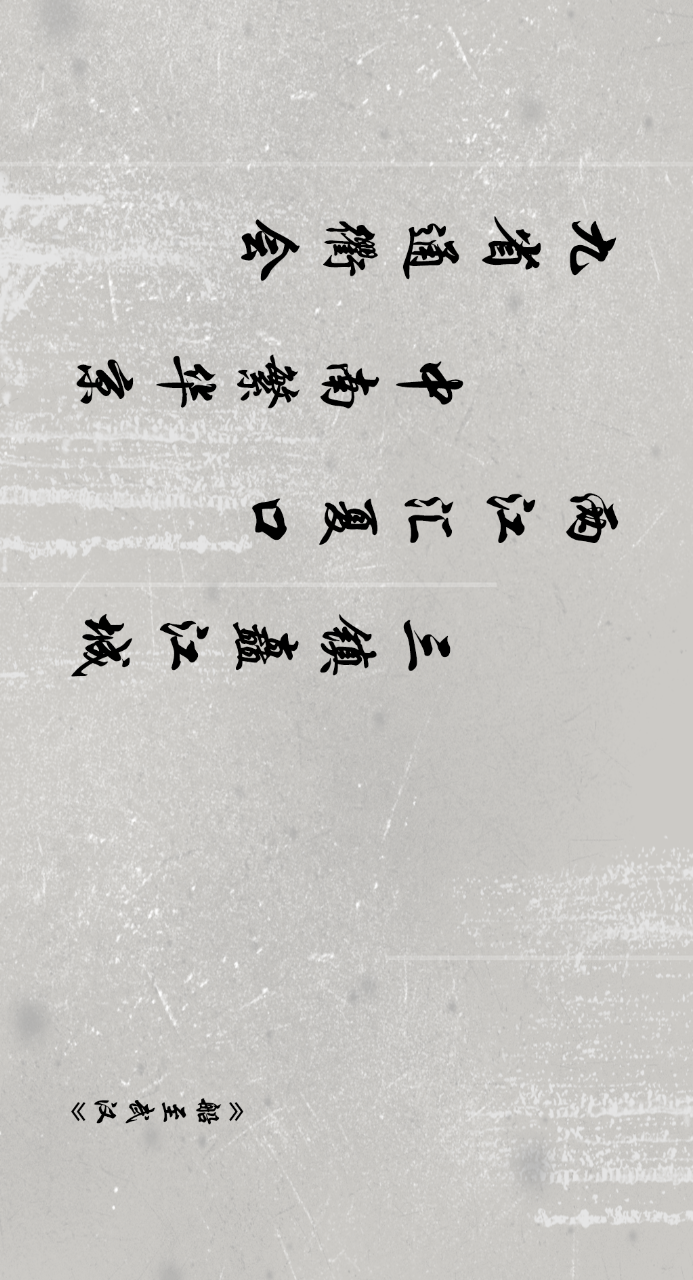 九省通衢会
中南繁华京
两江汇夏口
三镇矗江城
《船至武汉》